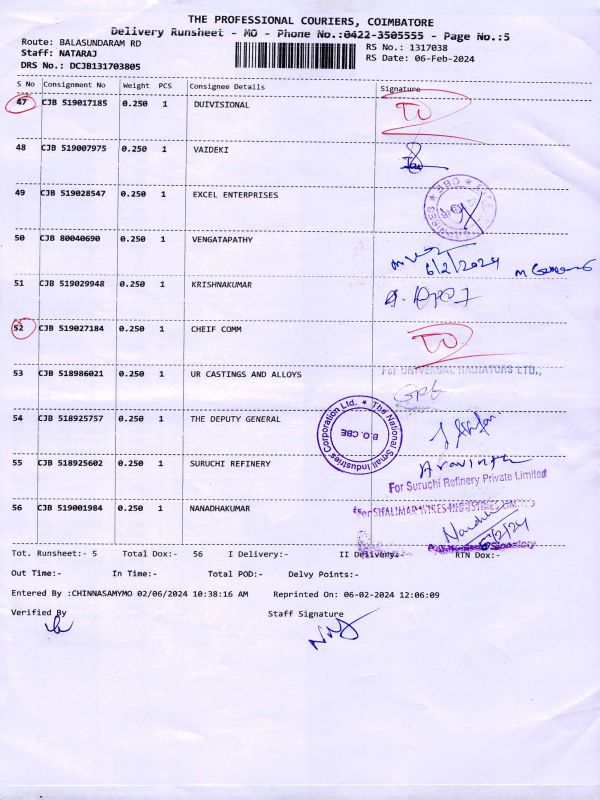 THE PROFESSIONAL COURIERS, COIMBATORE
Delivery Runsheet - MO - Phone No.:0422-3505555 - Page No.:5
Route: BALASUNDARAM RD RS No.: 1317038
Staff: NATARAJ RS Date: 06-Feb-2024
DRS No.: DCJB131703805
S No Consignment No Weight PCS Consignee Details Signature
47 CJB 519017185 0.250 1 DUIVISIONAL
48 CJB 519007975 0.250 1 VAIDEKI
49 CJB 519028547 0.250 1 EXCEL ENTERPRISES
50 CJB 80040690 0.250 1 VENGATAPATHY
6/2/2024
51 CJB 519029948 0.250 1 KRISHNAKUMAR
52 CJB 519027184 0.250 1 CHEIF COMM
53 CJB 518986021 0.250 1 UR CASTINGS AND ALLOYS For UNIVERSAL RADIATORS LTD.,
54 CJB 518925757 0.250 1 THE DEPUTY GENERAL
The National Small Industries Corporation Ltd. ★
B.O. CBE
55 CJB 518925602 0.250 1 SURUCHI REFINERY Aravinth
For Suruchi Refinery Private Limited
56 CJB 519001984 0.250 1 NANADHAKUMAR For SHALIMAR WIRES INDUSTRIES LIMITED
6/2/24
Tot. Runsheet:- 5 Total Dox:- 56 I Delivery:- II Delivery:- RTN Dox:-
Out Time:- In Time:- Total POD:- Delvy Points:-
Entered By :CHINNASAMYMO 02/06/2024 10:38:16 AM Reprinted On: 06-02-2024 12:06:09
Verified By Staff Signature